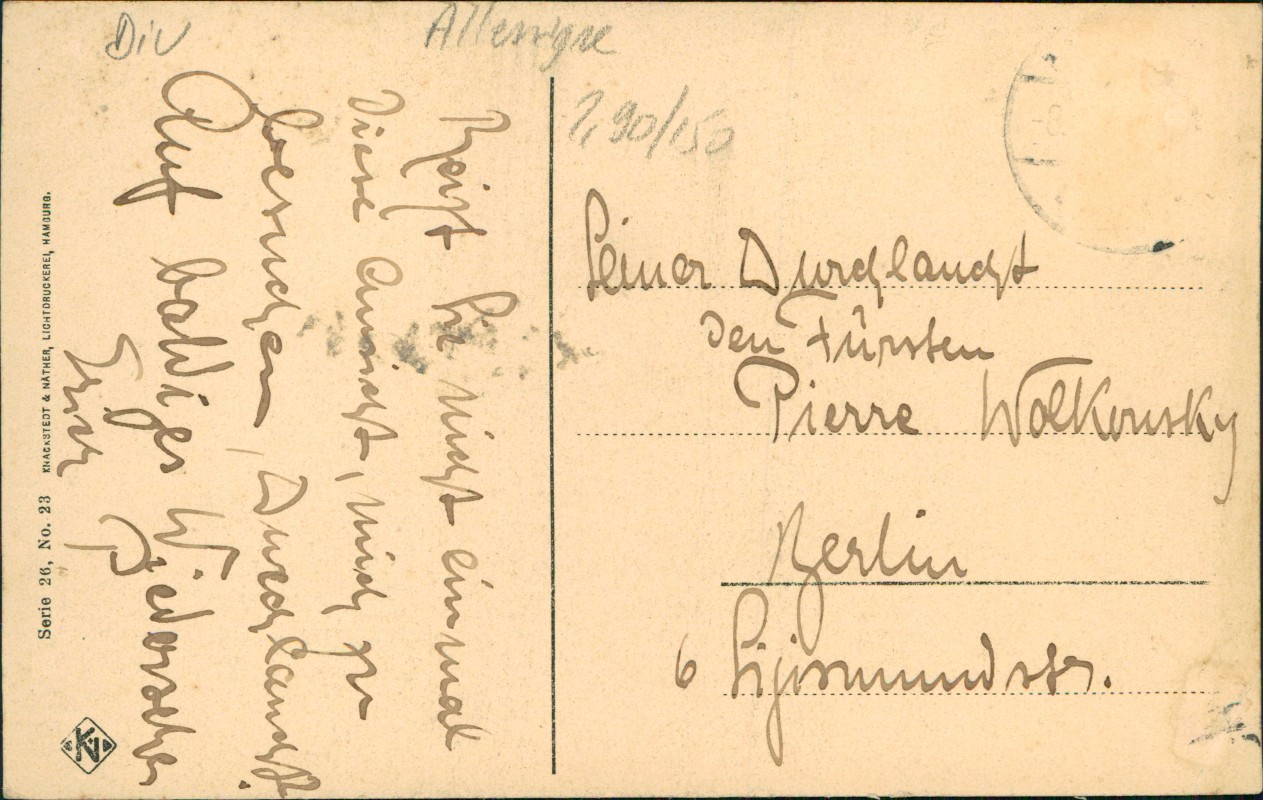 Div
Allemagne
1,90/150
Reizt Sie nicht einmal
diese Ansicht, mich zu
besuchen, Durchlaucht.
Auf baldiges Wiedersehen
Seiner Durchlaucht
den Fürsten
Pierre Wolkonsky
Berlin
6 Sigismundstr.
Serie 26, No. 23 KNACKSTEDT & NÄTHER, LICHTDRUCKEREI, HAMBURG.